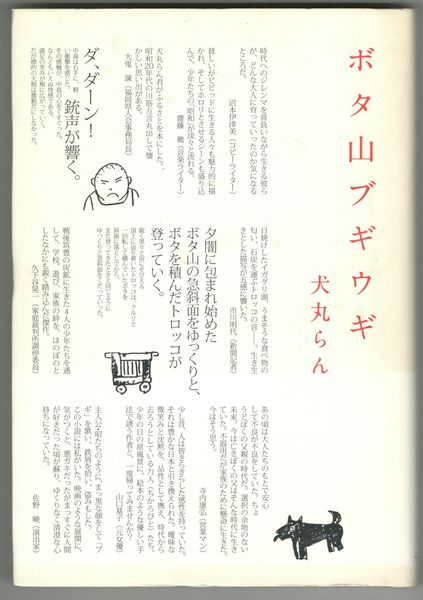 ボタ山ブギウギ
犬丸らん
時代へのジレンマを背負いながら生きる彼ら
が、どんな大人に育っていったのか気になる
ところだ。
沼本伊津美（コピーライター）
貧しいがビビッドに生きる人々も魅力的に描
かれ、そしてホロリとさせるシーンも盛り込
んで、少年たちの「昭和」が淡々と流れる。
齋藤 徹（音楽ライター）
犬丸らん君がふるさとを本にした。
昭和20年代の川筋方言丸出しで懐
かしい思い出がある。
大鬼 諫（福岡県人会事務局長）
ダ、ダーン！
銃声が響く。
日焼けしたイガグリ頭、うまそうな食べ物の
匂い、石炭を運ぶトロッコの音――。生き生
きとした描写が五感に響いた。
市川明代（新聞記者）
夕闇に包まれ始めた
ボタ山の急斜面をゆっくりと、
ボタを積んだトロッコが
登っていく。
戦後筑豊の炭鉱に生きた4人の少年たちを通
して、学校、遊び、家族の絆を、ほのぼのと
したなかにも鋭く踏み込んだ傑作。
久下谷晃二（家庭裁判所調停委員）
あの頃は大人たちのもと で安心
して不良が不良をしていた。ちょ
うどぼくの父親の時代だ。選択の余地のない
未来。今は亡きぼくの父はそんな時代に生き
ていた。不器用だが家族のために懸命に生きた。
今はそう思う。
寺内康弘（営業マン）
少し昔、人は皆きらきらした感性を持っていた。
それは豊かな日本と引き換えられた。曖昧な
微笑みと沈黙を、品性として携え、時代から
去ろうとしている力人（ちからびと）たち。
少年の日の原風景に、絵本のような優しい手
法で誘う作者と、一度帰ってみませんか？
山口易子（元女優）
主人公・昭たちのように、まっ黒な顔をして「ブ
ギ」を歌い、鉄屑を拾い、盗みもした。
この小説には私がいた。映画のような展開に、
気がつくと、悪ガキだったがまっすぐに人間
が好きだった頃が蘇り、ゆくりなく清澄な心
持ちになっていた。
佐野 曉（演出家）